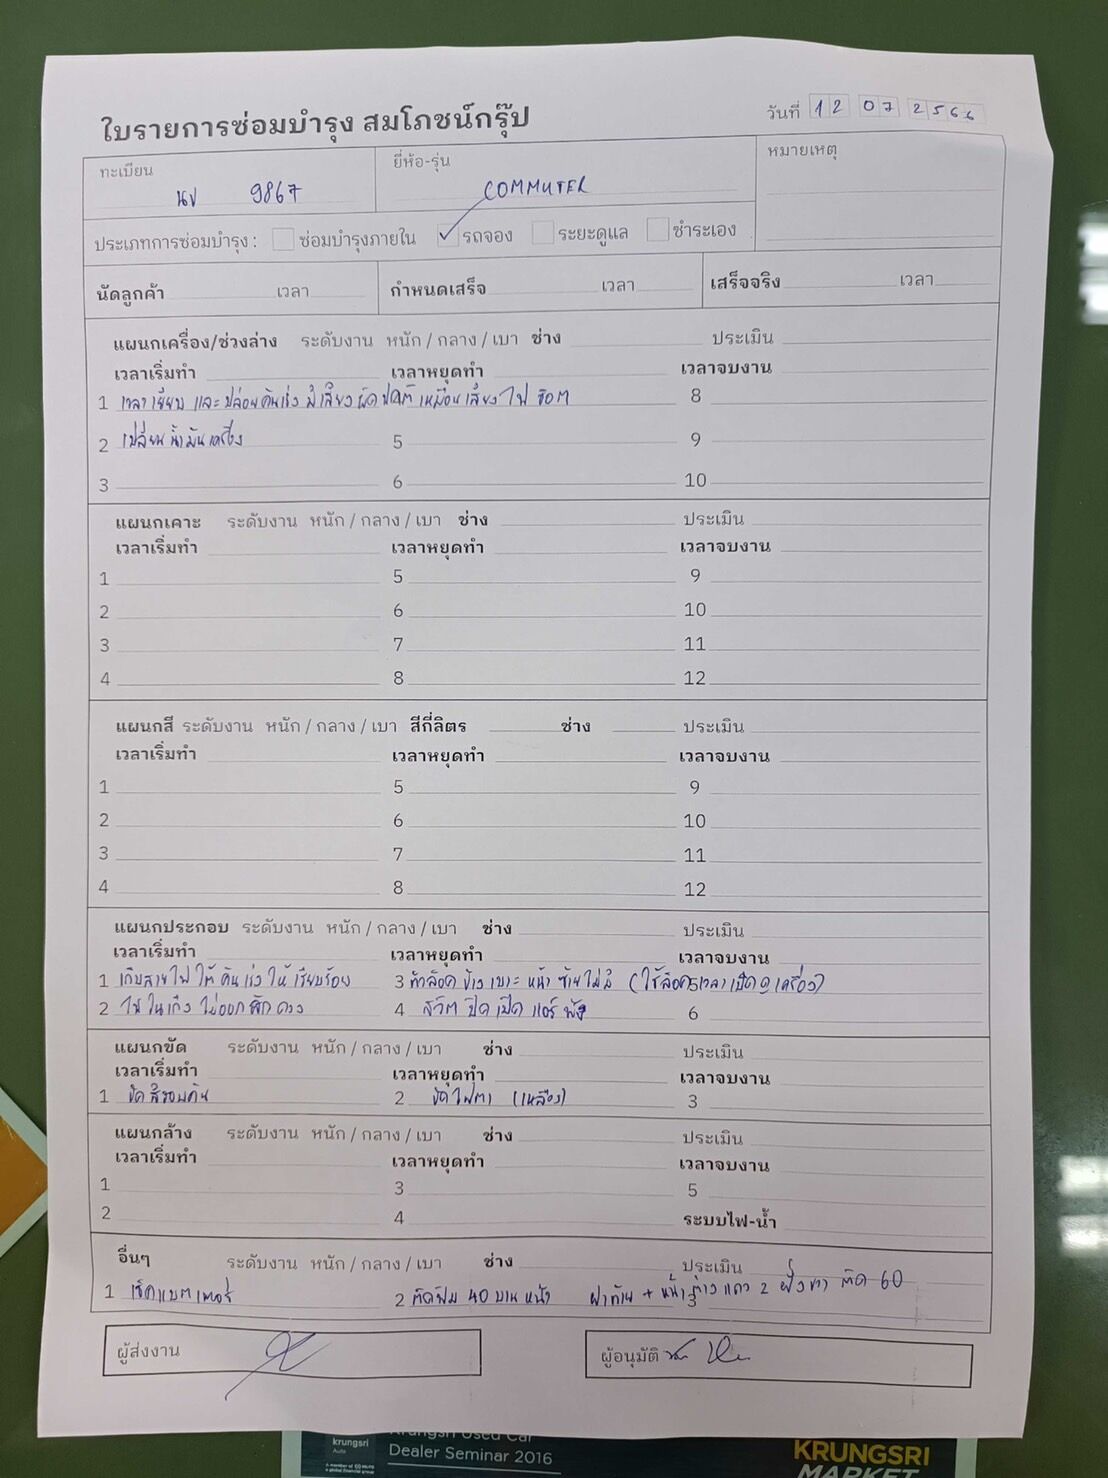 ใบรายการซ่อมบำรุง สมโภชน์กรุ๊ป
วันที่ 12 07 2566
ทะเบียน
นข 9867
ยี่ห้อ-รุ่น
COMMUTER
หมายเหตุ
ประเภทการซ่อมบำรุง : ซ่อมบำรุงภายใน ✓ รถจอง ระยะดูแล ชำระเอง
นัดลูกค้า เวลา กำหนดเสร็จ เวลา เสร็จจริง เวลา
แผนกเครื่อง/ช่วงล่าง ระดับงาน หนัก / กลาง / เบา ช่าง ประเมิน
เวลาเริ่มทำ เวลาหยุดทำ เวลาจบงาน
1 เวลาเหยียบ และ ปล่อยคันเร่ง มีเสียงผิดปกติ เหมือนเสียงไฟช็อต 8
2 เปลี่ยนน้ำมันเครื่อง 5 9
3 6 10
แผนกเคาะ ระดับงาน หนัก / กลาง / เบา ช่าง ประเมิน
เวลาเริ่มทำ เวลาหยุดทำ เวลาจบงาน
1 5 9
2 6 10
3 7 11
4 8 12
แผนกสี ระดับงาน หนัก / กลาง / เบา สีกี่ลิตร ช่าง ประเมิน
เวลาเริ่มทำ เวลาหยุดทำ เวลาจบงาน
1 5 9
2 6 10
3 7 11
4 8 12
แผนกประกอบ ระดับงาน หนัก / กลาง / เบา ช่าง ประเมิน
เวลาเริ่มทำ เวลาหยุดทำ เวลาจบงาน
1 เก็บสายไฟใต้คันเร่งให้เรียบร้อย 3 ตัวล็อค ข้างเบาะหน้าซ้ายไม่มี (ใช้ล็อคเวลาเปิดดูเครื่อง) 5
2 ไฟในเก๋งไม่ออกสักดวง 4 สวิต ปิด เปิด แอร์ พัง 6
แผนกขัด ระดับงาน หนัก / กลาง / เบา ช่าง ประเมิน
เวลาเริ่มทำ เวลาหยุดทำ เวลาจบงาน
1 ขัดสีรอบคัน 2 ขัดไฟตา (เหลือง) 3
แผนกล้าง ระดับงาน หนัก / กลาง / เบา ช่าง ประเมิน
เวลาเริ่มทำ เวลาหยุดทำ เวลาจบงาน
1 3 5
2 4 ระบบไฟ-น้ำ
อื่นๆ ระดับงาน หนัก / กลาง / เบา ช่าง ประเมิน
1 เช็คแบตเตอรี่ 2 ติดฟิม 40 บานหน้า ฝาท้าย + หน้าต่างแถว 2 ฝั่งขวา ติด 60 3
ผู้ส่งงาน
ผู้อนุมัติ
krungsri
Auto
Krungsri Used Car
Dealer Seminar 2016
KRUNGSRI
MARKET